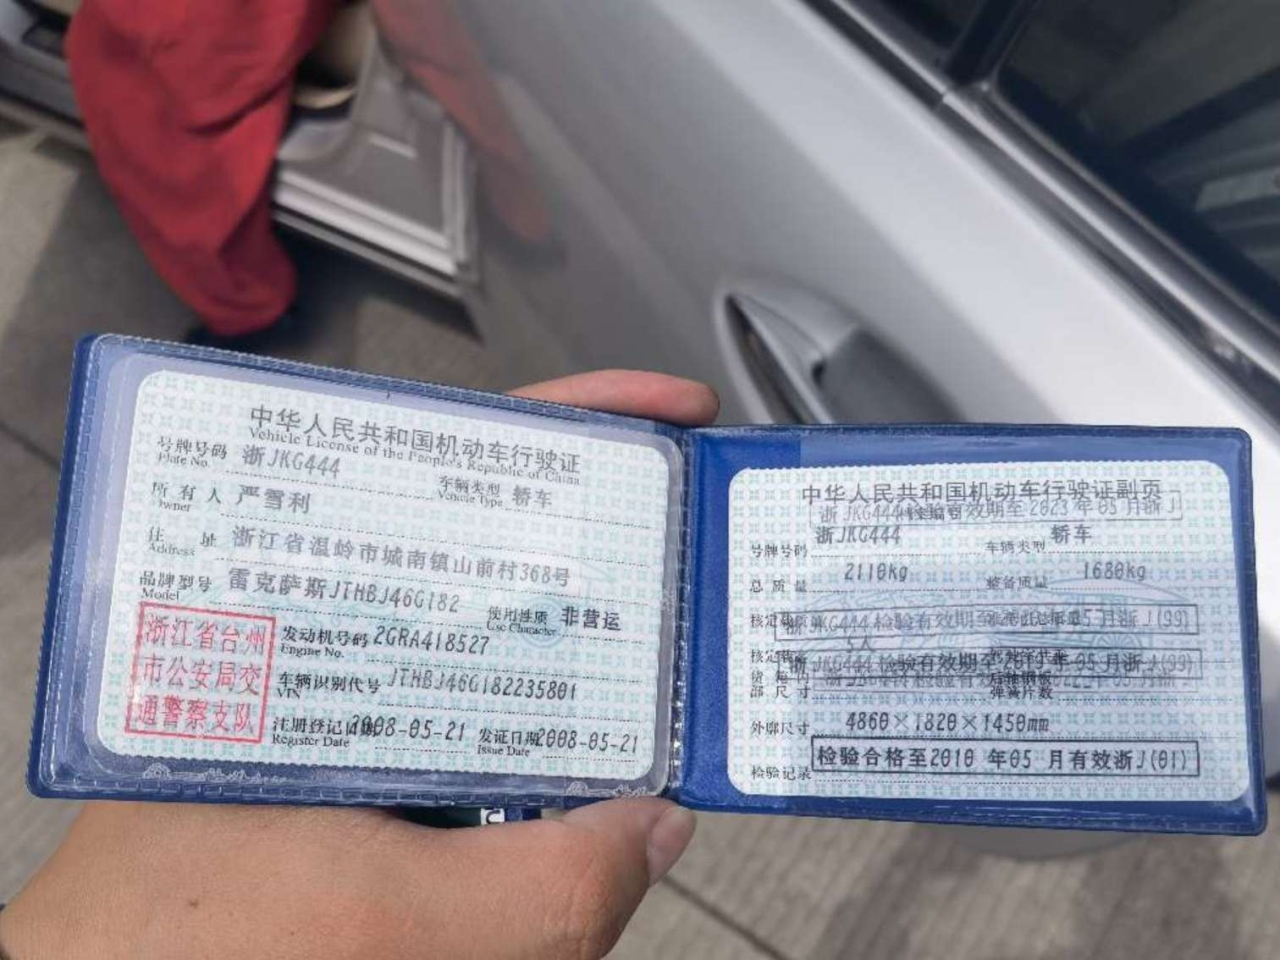 中华人民共和国机动车行驶证
Vehicle License of the People's Republic of China
号牌号码 浙JKG444 车辆类型 轿车
Plate No. Vehicle Type
所有人 严雪利
Owner
住址 浙江省温岭市城南镇山前村368号
Address
品牌型号 雷克萨斯JTHBJ46G182
Model
使用性质 非营运
Use Character
浙江省台州
市公安局交
通警察支队
发动机号码 2GRA418527
Engine No.
车辆识别代号 JTHBJ46G182235801
VIN
注册登记日期 2008-05-21 发证日期 2008-05-21
Register Date Issue Date
中华人民共和国机动车行驶证副页
浙JKG444 检验有效期至2023年05月浙J
号牌号码 浙JKG444 车辆类型 轿车
总质量 2110kg 整备质量 1680kg
浙JKG444 检验有效期至 05月浙J(99)
5人
浙JKG444 检验有效期至 05月浙J(99)
外廓尺寸 4860×1820×1450mm
检验记录 检验合格至2010年05月有效浙J(01)